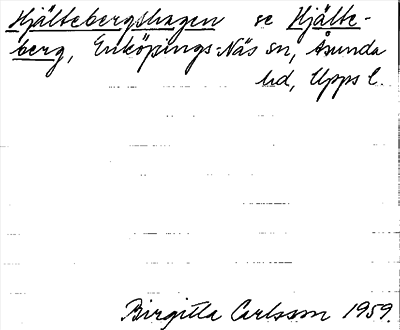 Hjältebergshagen se Hjälte-
berg, Enköpings-Näs sn, Åsunda
hd, Upps l.
Birgitta Carlsson 1959.